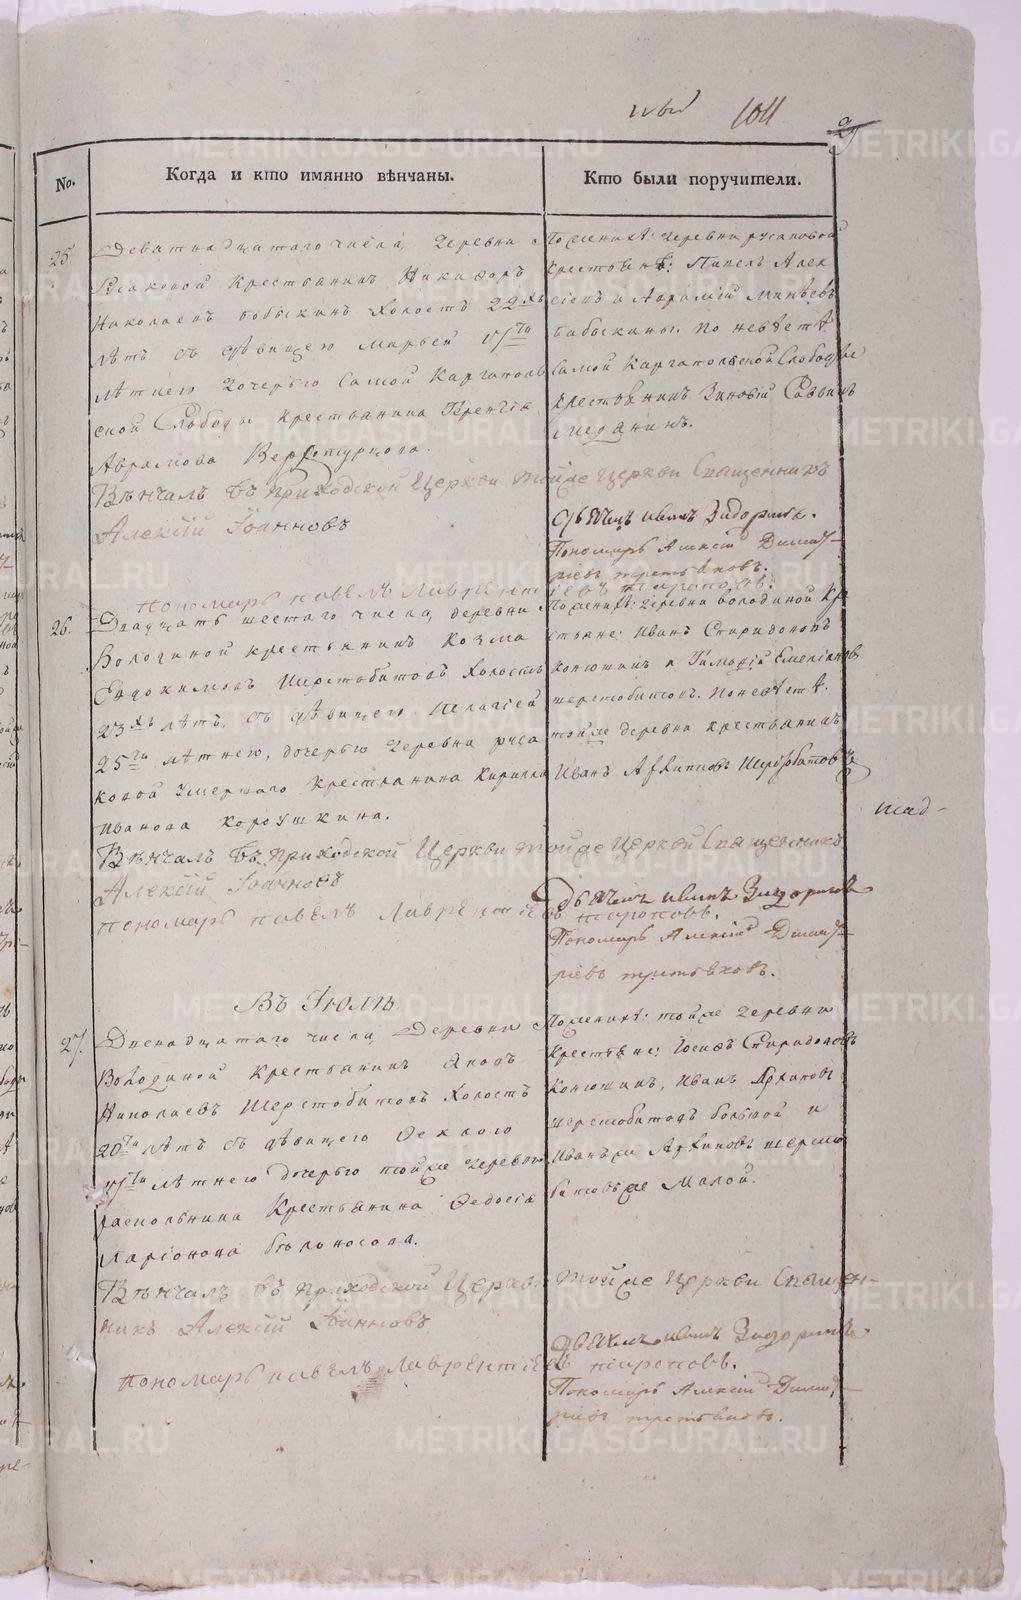 1011
No.
Когда и кто имянно вѣнчаны.
Кто были поручители.
25.
Деватнадцатаго числа, деревни
Русаковой крестьянинъ Никифоръ
Николаевъ бобыкинъ холостъ 22хъ
лѣтъ съ дѣвицею Марьей
лѣтнею дочерью самой Каргаполь
ской Слободы крестьянина Терентія
Аврамова Верхотурцова.
Вѣнчалъ въ приходской Церкви тойже Церкви Священникъ
Алексій Іоанновъ
пономарь павелъ Лаврентіевъ пироповъ.
Поженихѣ: деревни русаковой
крестьянѣ: Павелъ Алек
сіевъ и Аврамій Минѣевъ
бабыкины. По невѣстѣ
самой Каргапольской Слободы
крестьянинъ Зиновій Саввинъ
Меданинъ.
Пономарь Алексій Димит-
ріевъ третьяковъ.
26.
Двадцать шестаго числа, деревни
Володиной крестьянинъ Козма
Евдокимовъ Шерстобитовъ холостъ
23хъ лѣтъ, съ дѣвицею Пелагіей
25ти лѣтнею, дочерью деревни руса
ковой умершаго крестьянина Кирилла
Иванова Короушкина.
Вѣнчалъ въ приходской Церкви тойже Церкви Священникъ
Алексій Іоанновъ
пономарь павелъ Лаврентіевъ пироповъ.
Поженихѣ: деревни володиной кре
стьяне: Иванъ Спиридоновъ
конюшинъ и Тимофій Емеліановъ
шерстобитовъ. Поневѣстѣ.
тойже деревни крестьянинъ
Иванъ Архиповъ Шерстобитовъ
Пономарь Алексій Димит-
ріевъ третьяковъ.
Въ Іюлѣ
27.
Двенадцатаго числа, Деревни
Володиной крестьянинъ Яковъ
Николаевъ Шерстобитовъ холостъ
20ти лѣтъ съ дѣвицею Феклою
лѣтнею дочерью тойже деревни
раскольника крестьянина Федосія
Ларіонова бѣлоносова.
Вѣнчалъ въ приходской Церкви тойже Церкви Священ-
никъ Алексій Іоанновъ
пономарь павелъ Лаврентіевъ пироповъ.
Поженихѣ: тойже деревни
крестьяне: Іосифъ Спиридоновъ
Конюшинъ, Иванъ Архиповъ
шерстобитовъ большой и
Иванъ же Архиповъ шерсто
битовъ же Малой.
Пономарь Алексій Димит-
ріевъ третьяковъ.
METRIKI.GASO-URAL.RU